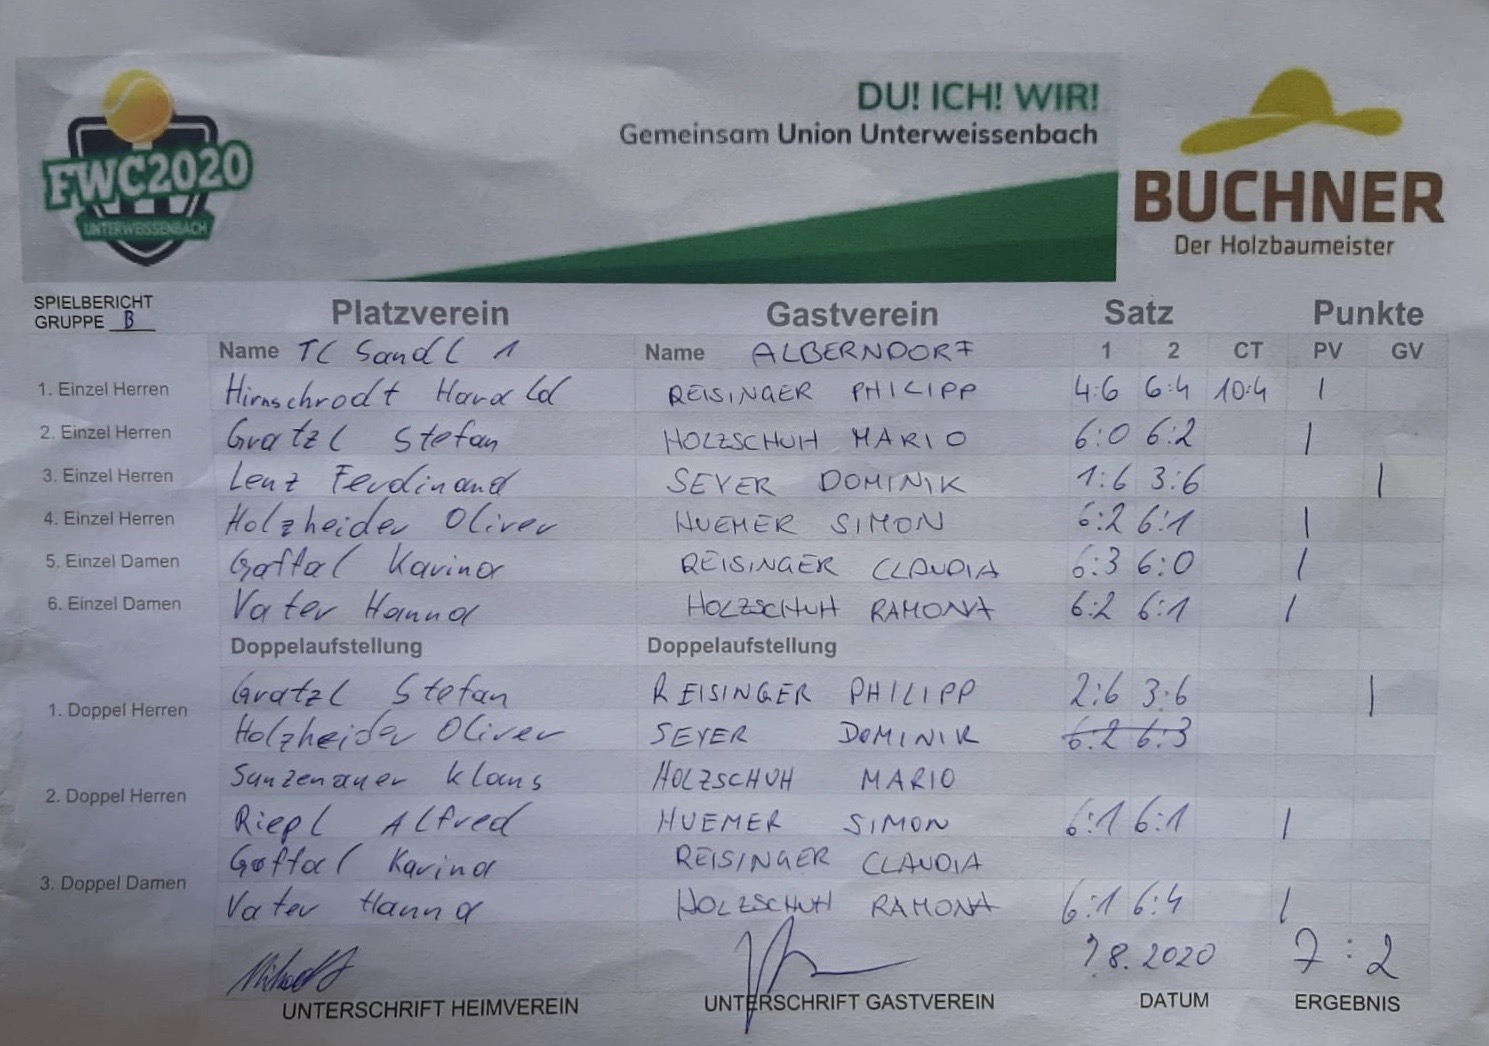 FWC2020
UNTERWEISSENBACH
DU! ICH! WIR!
Gemeinsam Union Unterweissenbach
BUCHNER
Der Holzbaumeister
SPIELBERICHT
GRUPPE B
Platzverein Gastverein Satz Punkte
Name TC Sandl 1 Name ALBERNDORF 1 2 CT PV GV
1. Einzel Herren Hirnschrodt Harald REISINGER PHILIPP 4:6 6:4 10:4 |
2. Einzel Herren Gratzl Stefan HOLZSCHUH MARIO 6:0 6:2 |
3. Einzel Herren Lenz Ferdinand SEYER DOMINIK 1:6 3:6 |
4. Einzel Herren Holzheider Oliver HUEMER SIMON 6:2 6:1 |
5. Einzel Damen Gaffal Karina REISINGER CLAUDIA 6:3 6:0 |
6. Einzel Damen Vater Hanna HOLZSCHUH RAMONA 6:2 6:1 |
Doppelaufstellung Doppelaufstellung
Gratzl Stefan REISINGER PHILIPP 2:6 3:6 |
1. Doppel Herren
Holzheider Oliver SEYER DOMINIK 6:2 6:3
Sanzenauer Klaus HOLZSCHUH MARIO
2. Doppel Herren
Riepl Alfred HUEMER SIMON 6:1 6:1 |
Gaffal Karina REISINGER CLAUDIA
3. Doppel Damen
Vater Hanna HOLZSCHUH RAMONA 6:1 6:4 |
7.8.2020 7:2
UNTERSCHRIFT HEIMVEREIN UNTERSCHRIFT GASTVEREIN DATUM ERGEBNIS